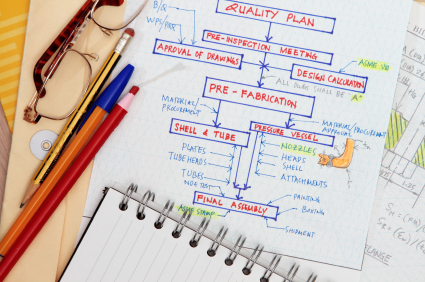 QUALITY PLAN
B/R
WPS/PQR
PRE-INSPECTION MEETING
APROVAL OF DRAWINGS
ASME VIII
DESIGN CALCULATION
ALL DWGS SHALL BE "A"
PRE-FABRICATION
MATERIAL/PROCUREMENT
MATERIAL/PROCUREMENT
APPROVAL
SHELL & TUBE
PRESSURE VESSEL
NOZZLES
PLATES
HEADS
TUBE HEADS
SHELL
TUBES
ATTACHMENTS
FINAL ASSEMBLY
PAINTING
BOXING
ASME STAMP
SHIPMENT